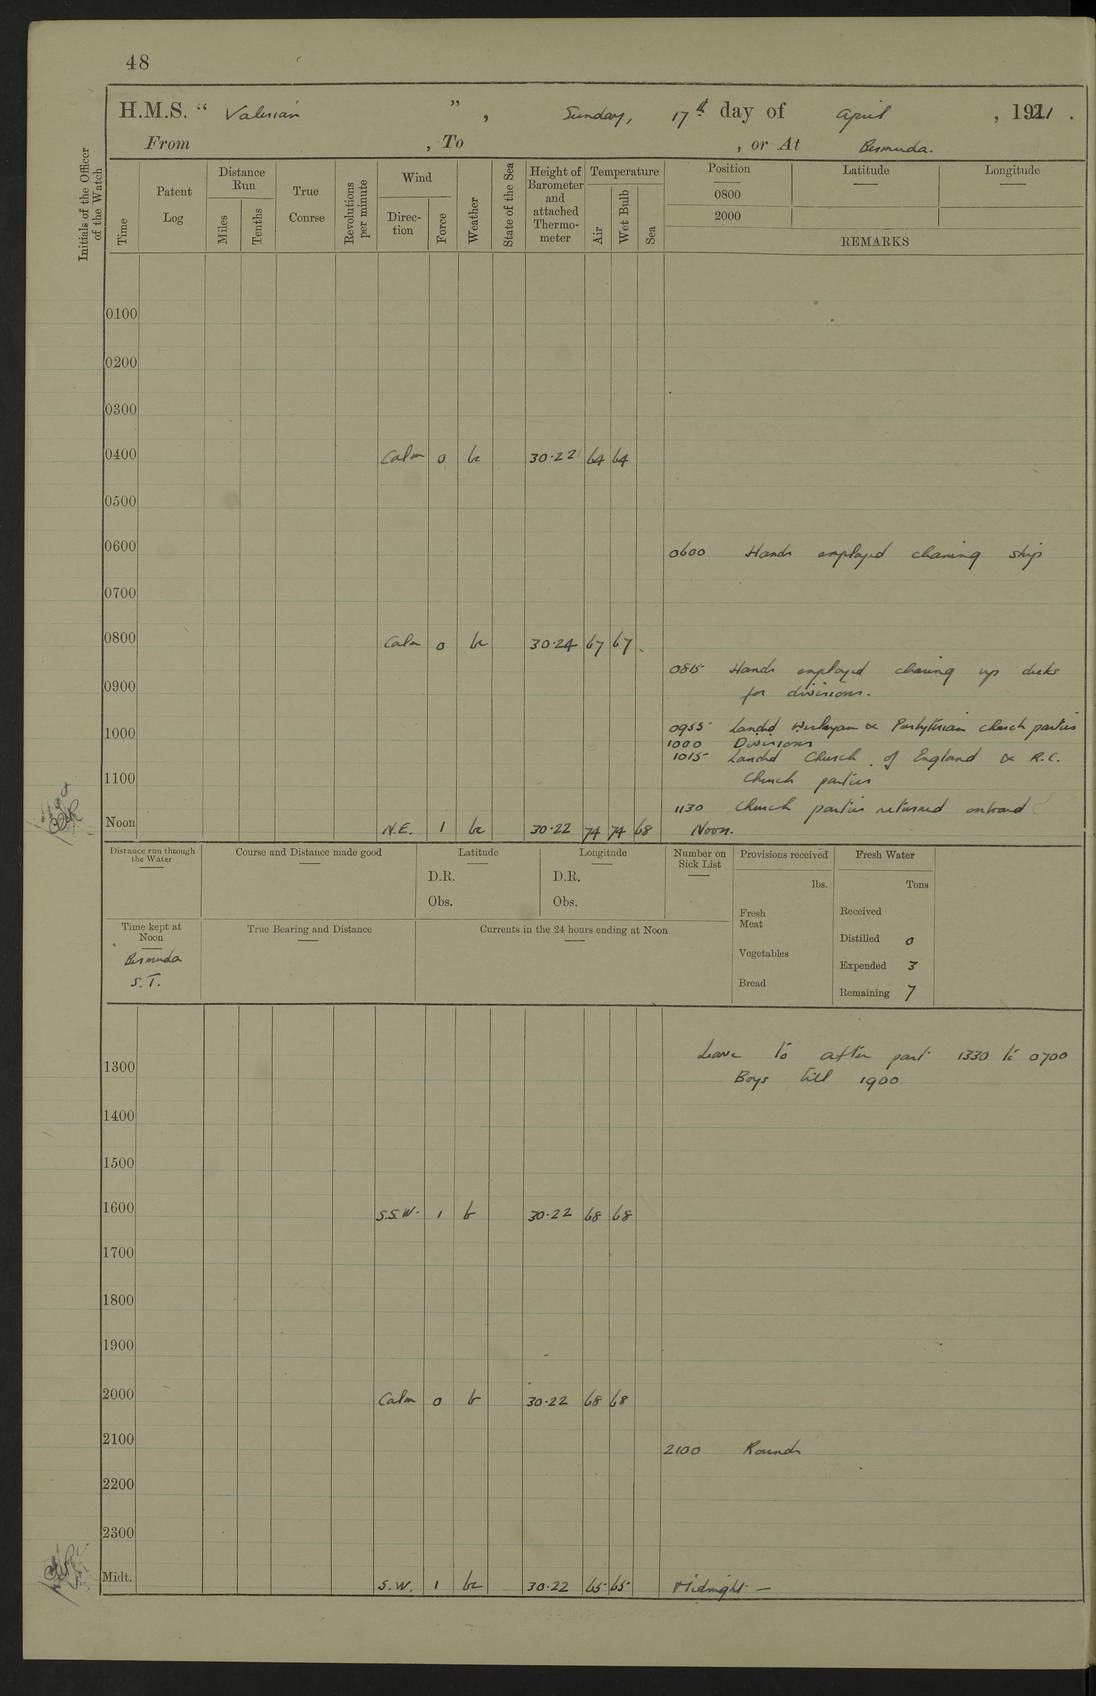 48
H.M.S. “ Valerian ” , Sunday, 17th day of April , 1921 .
From , To , or At Bermuda.
Initials of the Officer of the Watch
Time
Patent Log
Distance Run
Miles
Tenths
True Course
Revolutions per minute
Wind
Direction
Force
Weather
State of the Sea
Height of Barometer and attached Thermometer
Temperature
Air
Wet Bulb
Sea
Position Latitude Longitude
0800
2000
REMARKS
0100
0200
0300
0400 Calm 0 bc 30·22 64 64
0500
0600 0600 Hands employed cleaning ship
0700
0800 Calm 0 bc 30·24 67 67
0815 Hands employed clearing up decks
0900 for divisions.
0955 Landed Wesleyan & Presbyterian church parties
1000 1000 Divisions
1015 Landed Church of England & R.C.
1100 Church parties
1130 Church parties returned onboard
Noon N.E. 1 bc 30·22 74 74 68 Noon.
Distance run through the Water
Course and Distance made good
Latitude
D.R.
Obs.
Longitude
D.R.
Obs.
Number on Sick List
Provisions received
lbs.
Fresh Meat
Vegetables
Bread
Fresh Water
Tons
Received
Distilled 0
Expended 3
Remaining 7
Time kept at Noon
Bermuda
S.T.
True Bearing and Distance
Currents in the 24 hours ending at Noon
Leave to after part 1330 to 0700
1300 Boys till 1900
1400
1500
1600 S.S.W. 1 b 30·22 68 68
1700
1800
1900
2000 Calm 0 b 30·22 68 68
2100 2100 Rounds
2200
2300
Midt. S.W. 1 bc 30·22 65 65 Midnight —